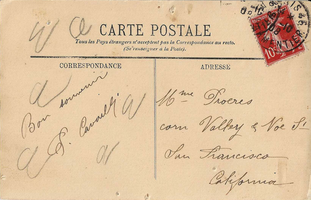 CARTE POSTALE
Tous les Pays étrangers n'acceptent pas la Correspondance au recto.
(Se renseigner à la Poste).
CORRESPONDANCE
ADRESSE
Bon souvenir
Mme
corn Valley & Noe St
San Francisco
California
10